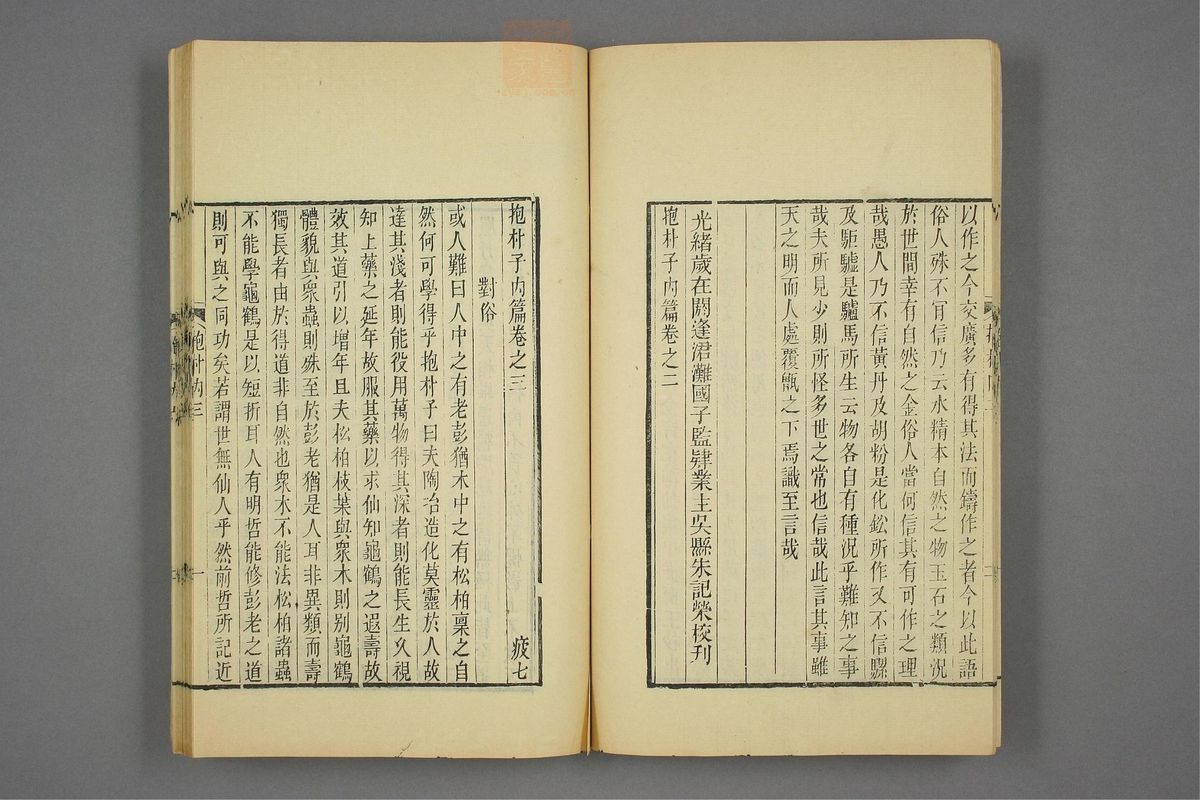 以作之今交廣多有得其法而鑄作之者今以此語
俗人殊不肎信乃云水精本自然之物玉石之類況
於世間幸有自然之金俗人當何信其有可作之理
哉愚人乃不信黃丹及胡粉是化鈆所作又不信騾
及駏驉是驢馬所生云物各自有種況乎難知之事
哉夫所見少則所怪多世之常也信哉此言其事雖
天之明而人處覆甑之下焉識至言哉
光緒歲在閼逢涒灘國子監肄業主吳縣朱記榮校刊
抱朴子內篇卷之二
抱朴子內篇卷之三
疲七
對俗
或人難曰人中之有老彭猶木中之有松柏稟之自
然何可學得乎抱朴子曰夫陶冶造化莫靈於人故
達其淺者則能役用萬物得其深者則能長生久視
知上藥之延年故服其藥以求仙知龜鶴之遐壽故
效其道引以增年且夫松柏枝葉與衆木則別龜鶴
體貌與衆蟲則殊至於彭老猶是人耳非異類而壽
獨長者由於得道非自然也衆木不能法松柏諸蟲
不能學龜鶴是以短折耳人有明哲能修彭老之道
則可與之同功矣若謂世無仙人乎然前哲所記近
抱朴內三
一